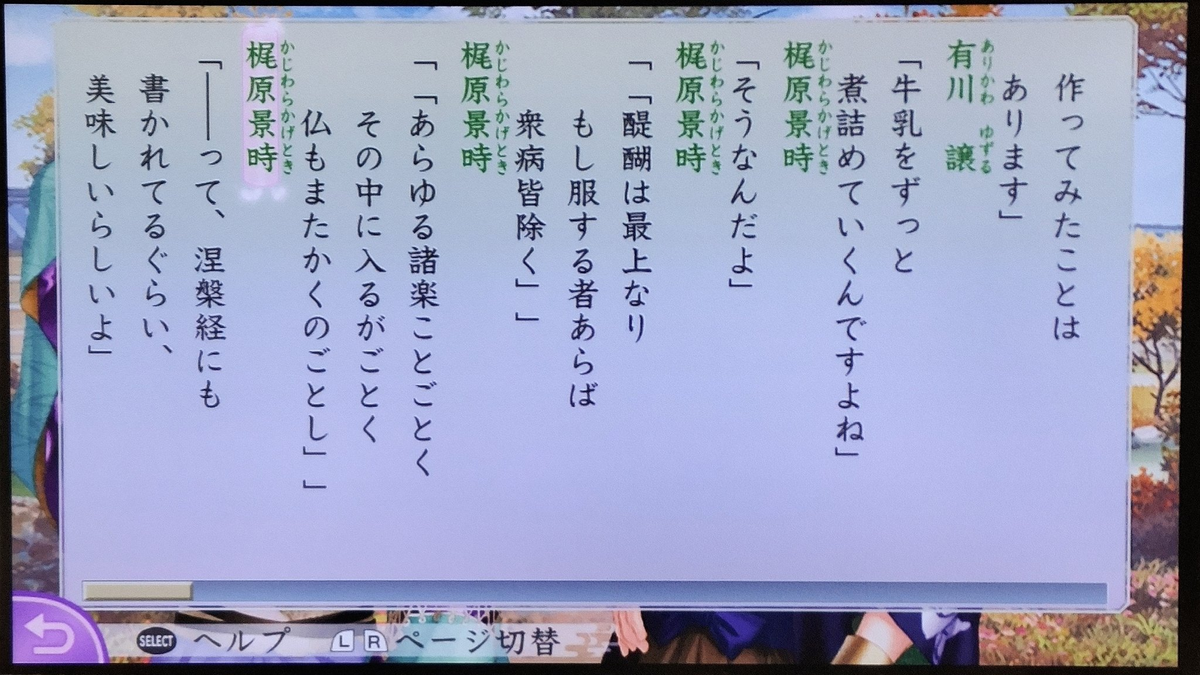 作ってみたことは
あります」
有川 譲
ありかわ ゆずる
「牛乳をずっと
煮詰めていくんですよね」
梶原景時
かじわらかげとき
「そうなんだよ」
梶原景時
かじわらかげとき
「「醍醐は最上なり
もし服する者あらば
衆病皆除く」」
梶原景時
かじわらかげとき
「「あらゆる諸楽ことごとく
その中に入るがごとく
仏もまたかくのごとし」」
梶原景時
かじわらかげとき
「――って、涅槃経にも
書かれてるぐらい、
美味しいらしいよ」
SELECT ヘルプ L R ページ切替